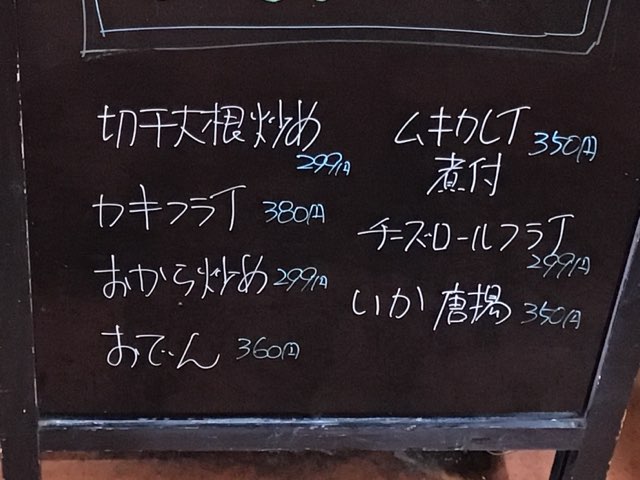 切干大根炒め
299円
カキフライ 380円
おから炒め 299円
おでん 360円
ムキカレイ 350円
煮付
チーズロールフライ
299円
いか唐揚 350円